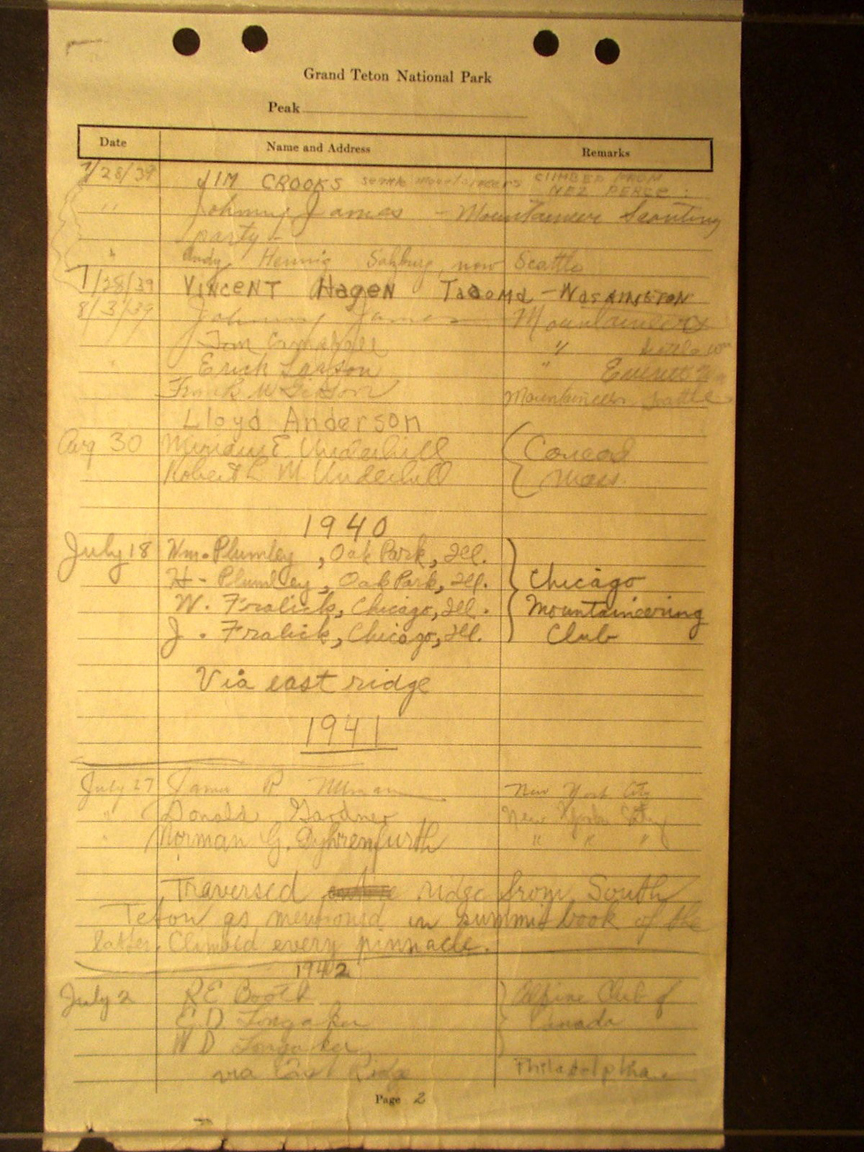 Grand Teton National Park
Peak
Date Name and Address Remarks
7/28/39 JIM CROOKS Seattle Mountaineers CLIMBED FROM
NEZ PERCE
" Johnny James - Mountaineer Scouting
party -
" Andy Hennig Salzburg, now Seattle
7/28/39 VINCENT Hagen Tacoma - WASHINGTON
8/3/39 Johnny James Mountaineers
Tom "
" Erick Larson "
Frank Mountaineers Seattle
Lloyd Anderson
Aug 30 Miriam E Underhill Concord
Robert L. M. Underhill Mass.
1940
July 18 Wm. Plumley, Oak Park, Ill.
H. Plumley, Oak Park, Ill. Chicago
W. Fralick, Chicago, Ill. Mountaineering
J. Fralick, Chicago, Ill. Club
Via east ridge
1941
July 27 James R New York City
" Donald Gardner New York City
" Norman G. Dyhrenfurth " " "
Traversed ridge from South
Teton as mentioned in summit book of the
latter. Climbed every pinnacle.
1942
July 2 R E Booth Alpine Club of
E D Longaker Canada
W D Longaker
via East Ridge Philadelphia.
Page 2